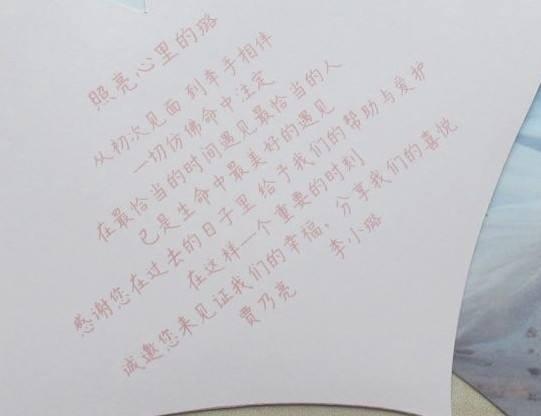 照亮心里的璐
从初次见面到牵手相伴
一切仿佛命中注定
在最恰当的时间遇见最恰当的人
已是生命中最美好的遇见
感谢您在过去的日子里 给予我们的帮助与爱护
在这样一个重要的时刻
诚邀您来见证我们的幸福，分享我们的喜悦
贾乃亮 李小璐